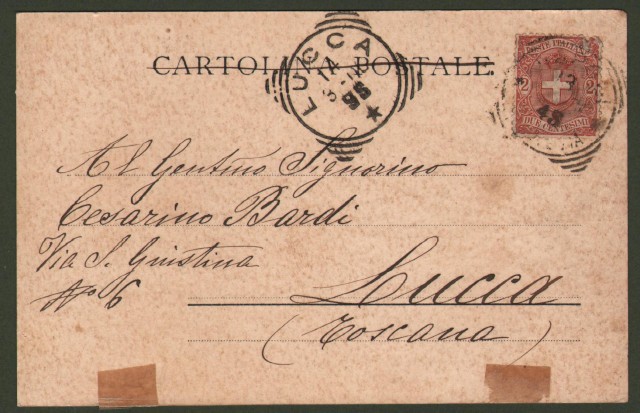 CARTOLINA POSTALE
LUCCA
14
98
POSTE ITALIANE
2 2
DUE CENTESIMI
Al Gentmo Signorino
Cesarino Bardi
Via S. Giustina
No 6
Lucca
(Toscana)